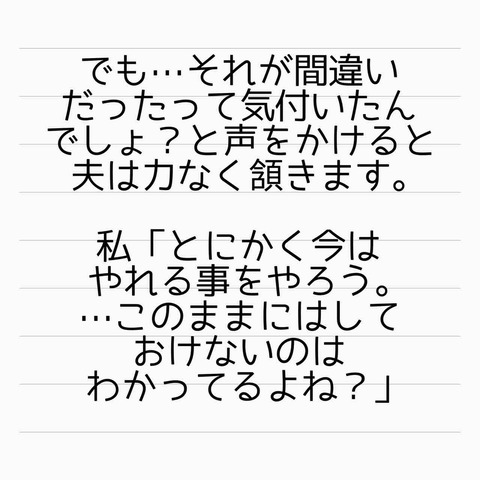 でも…それが間違い
だったって気付いたん
でしょ？と声をかけると
夫は力なく頷きます。
私「とにかく今は
やれる事をやろう。
…このままにはして
おけないのは
わかってるよね？」